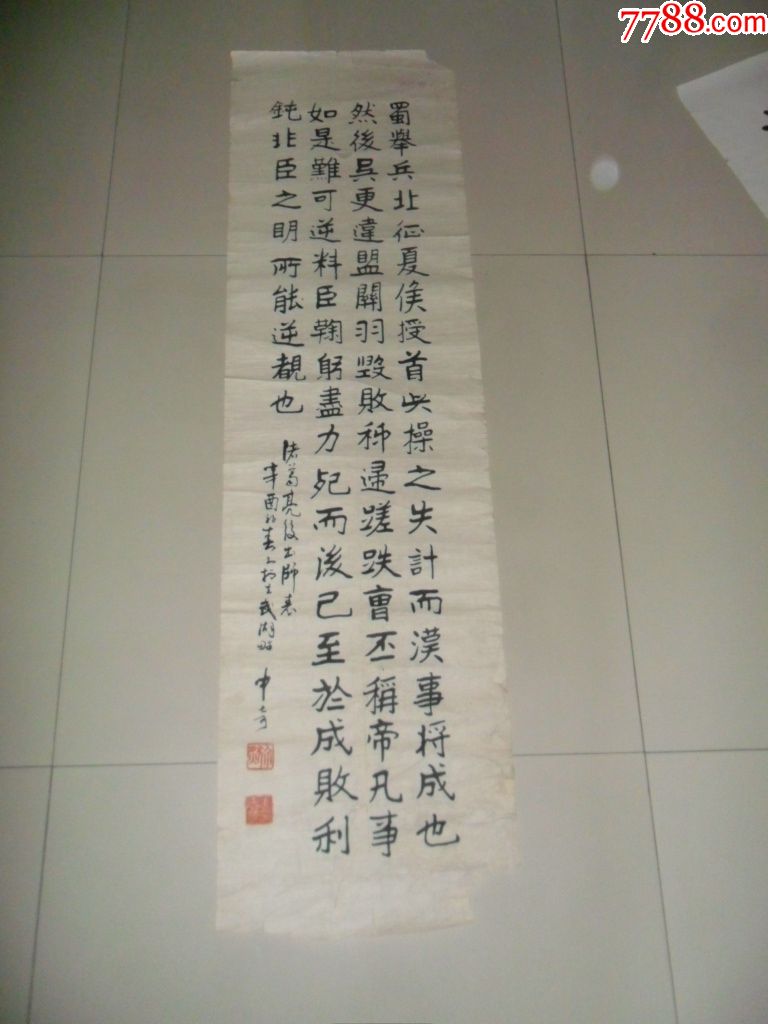 7788.com
蜀舉兵北征夏侯授首此操之失計而漢事将成也
然後吴更違盟關羽毀敗秭歸蹉跌曹丕稱帝凡事
如是難可逆料臣鞠躬盡力死而後已至於成敗利
鈍非臣之明所能逆覩也
诸葛亮後出師表
辛酉初春